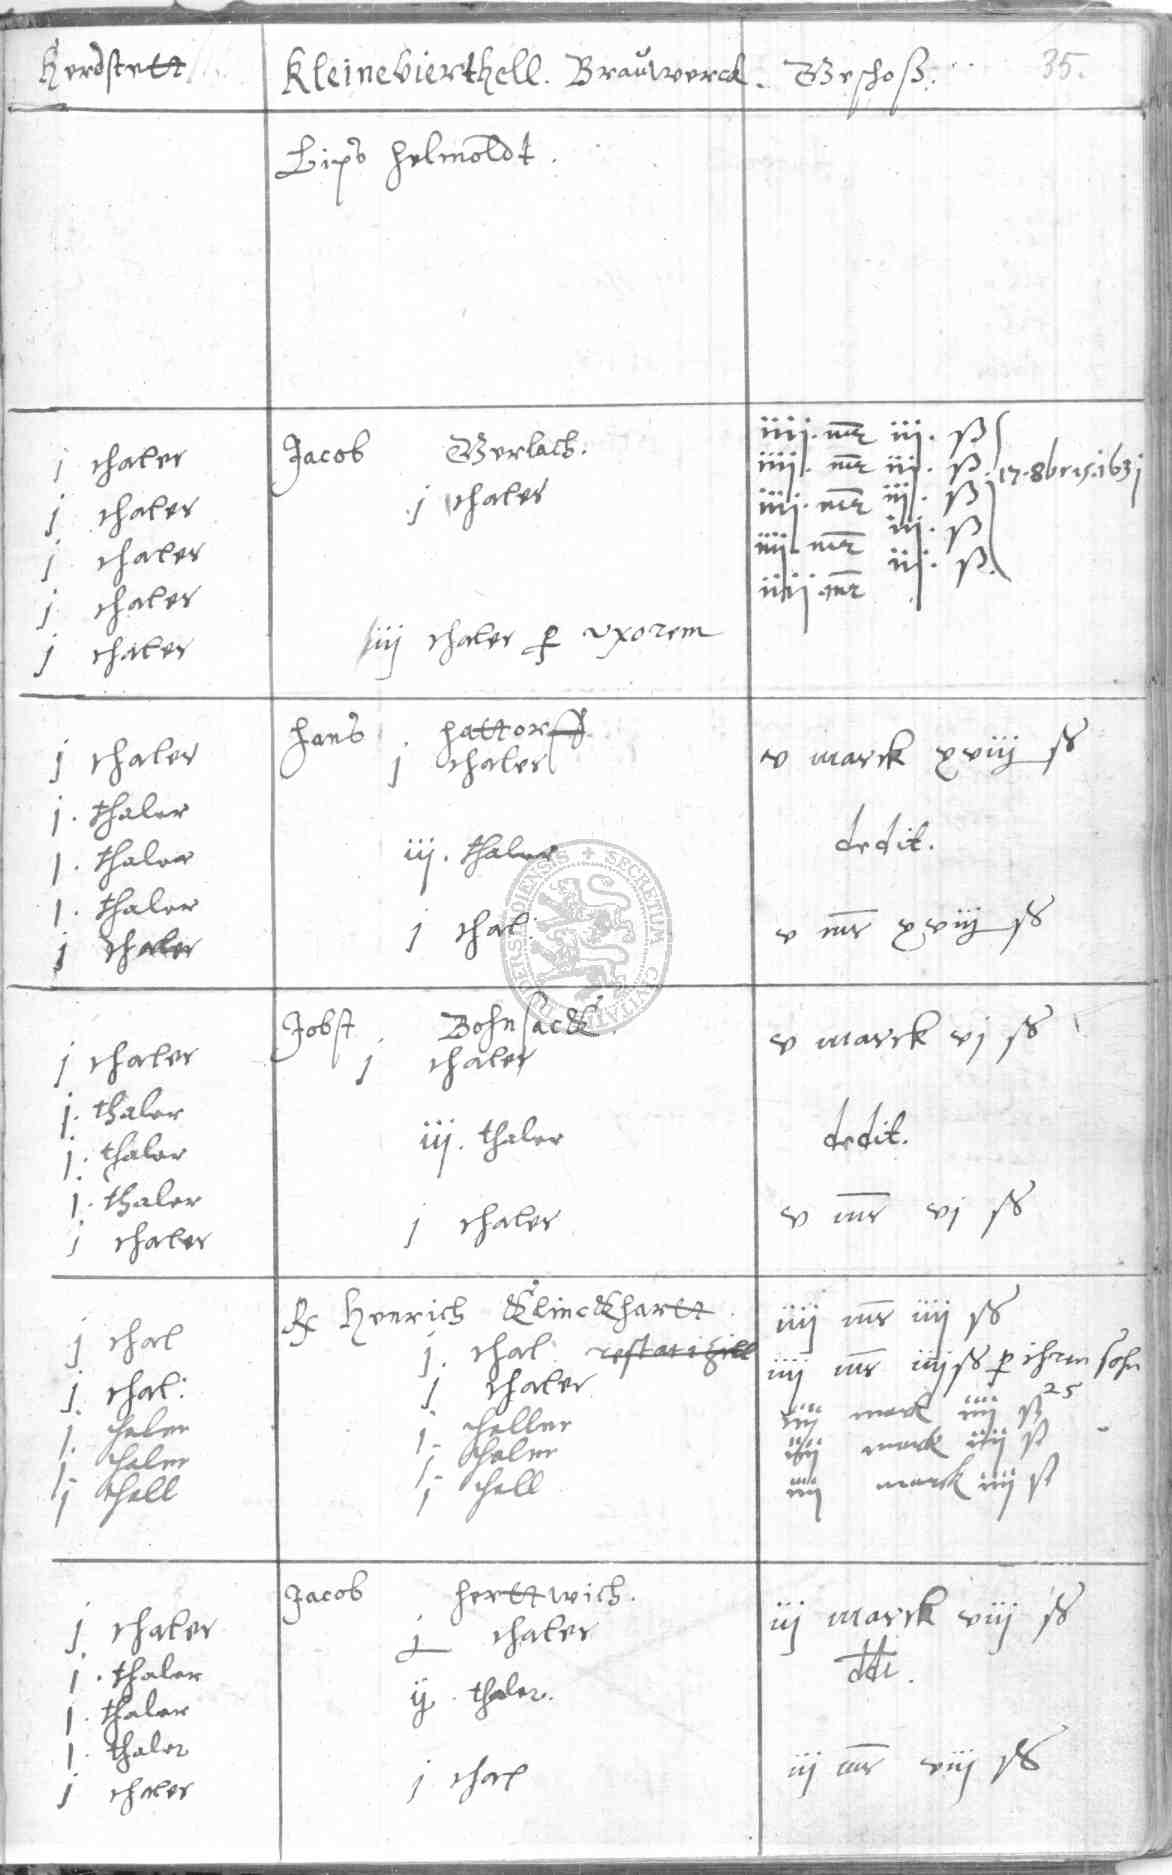 Herdstett Kleinevierthell. Brauwerck. Geschoß. 35.
Lips Helmoldt.
Jacob Gerlach.
j thaler
j thaler
j thaler
j thaler
j thaler
j thaler
iiij thaler p uxorem
iiij. mr iij. ß
iiij. mr iij. ß. 17. 8bris. 163j
iiij. mr iij. ß
iiij. mr iij. ß
iiij mr iij. ß.
Hans Hattorff
j thaler j thaler v marck xviij ß
j. thaler
j. thaler iij. thaler dedit.
j. thaler
j thaler j thal v mr xviij ß
Jobst Bohnsack
j thaler j thaler v marck vj ß
j. thaler
j. thaler iij. thaler dedit.
j. thaler
j thaler j thaler v mr vj ß
Henrich Klinckhartt iiij mr iiij ß
j thal j. thal iiij mr iiij ß p ihren sohn
j thal: j thaler iiij marck iiij ß 25
j. thaler j. thaller iiij marck iiij ß
j thaler j thaler iiij marck iiij ß
j thall j thall
Jacob Herttwich.
j thaler j thaler iij marck viij ß
j. thaler ddt.
j. thaler ij. thaler.
j. thaler
j thaler j thal iij mr viij ß
SECRETUM CIVITATIS